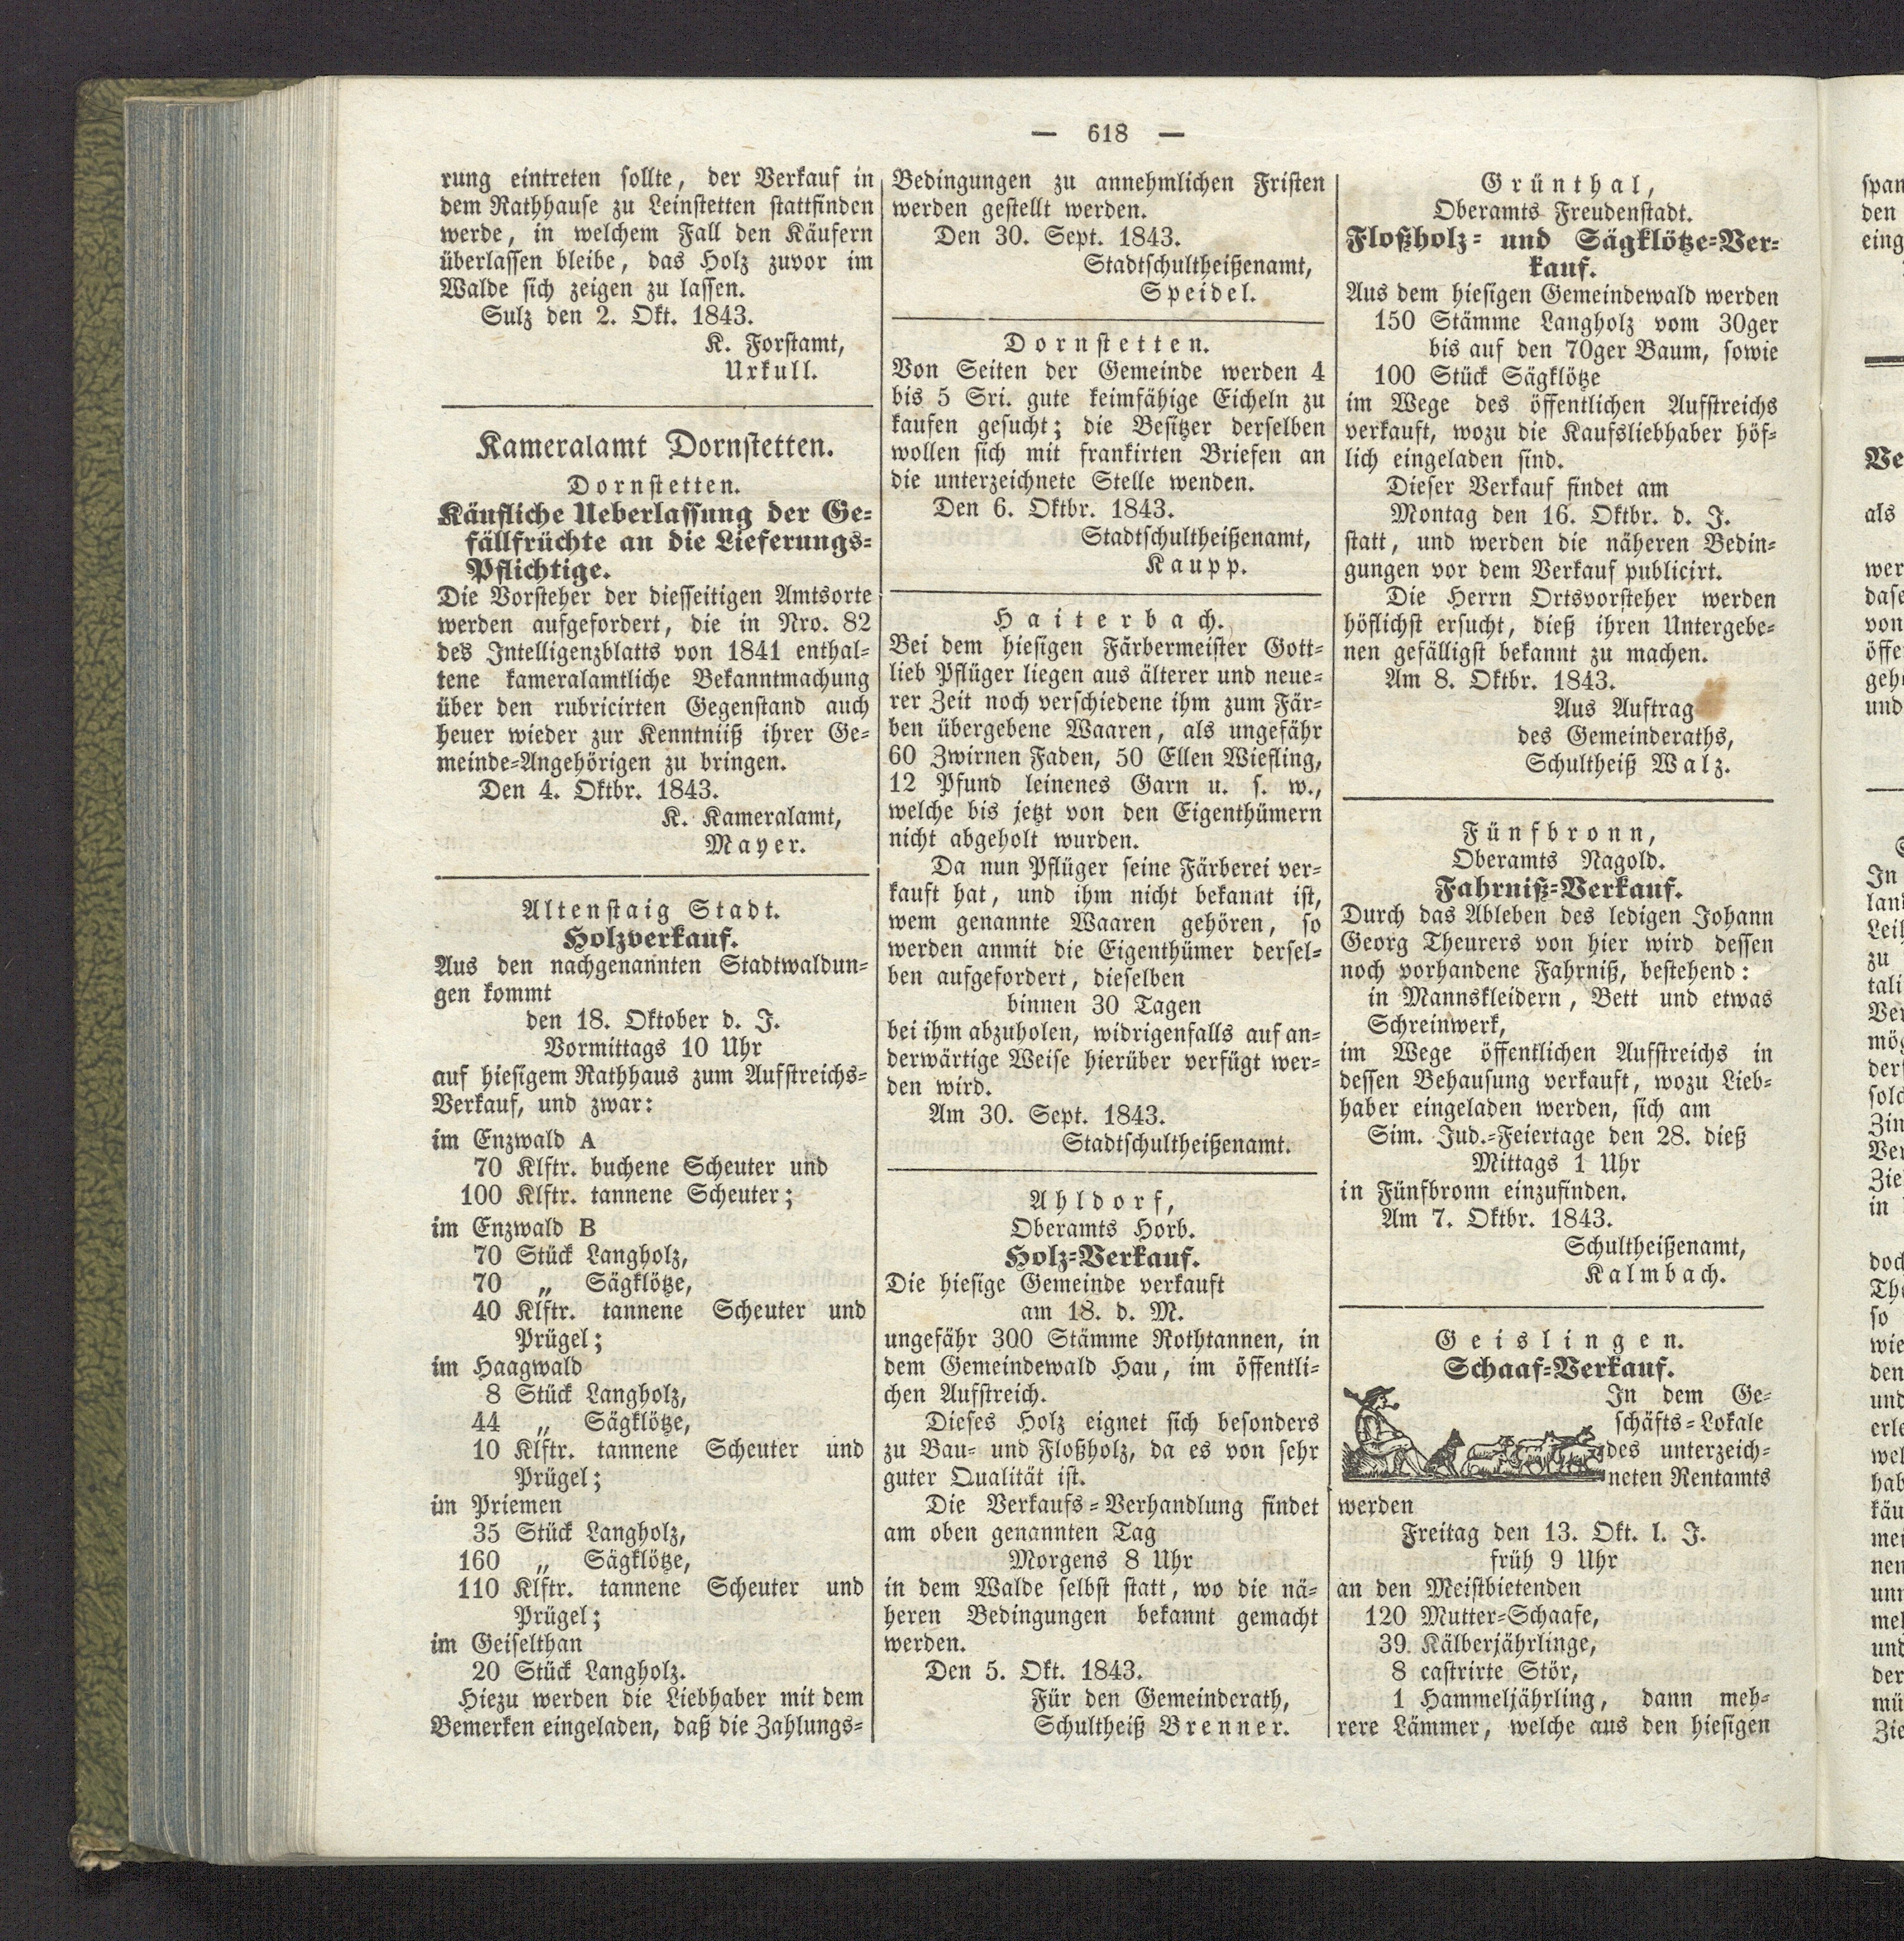 — 618 —
rung eintreten sollte, der Verkauf in
dem Rathhause zu Leinstetten stattfinden
werde, in welchem Fall den Käufern
überlassen bleibe, das Holz zuvor im
Walde sich zeigen zu lassen.
Sulz den 2. Okt. 1843.
K. Forstamt,
Urkull.
Kameralamt Dornstetten.
Dornstetten.
Käufliche Ueberlassung der Ge-
fällfrüchte an die Lieferungs-
Pflichtige.
Die Vorsteher der diesseitigen Amtsorte
werden aufgefordert, die in Nro. 82
des Intelligenzblatts von 1841 enthal-
tene kameralamtliche Bekanntmachung
über den rubricirten Gegenstand auch
heuer wieder zur Kenntniiß ihrer Ge-
meinde-Angehörigen zu bringen.
Den 4. Oktbr. 1843.
K. Kameralamt,
Mayer.
Altenstaig Stadt.
Holzverkauf.
Aus den nachgenannten Stadtwaldun-
gen kommt
den 18. Oktober d. J.
Vormittags 10 Uhr
auf hiesigem Rathhaus zum Aufstreichs-
Verkauf, und zwar:
im Enzwald A
70 Klftr. buchene Scheuter und
100 Klftr. tannene Scheuter;
im Enzwald B
70 Stück Langholz,
70 „ Sägklötze,
40 Klftr. tannene Scheuter und
Prügel;
im Haagwald
8 Stück Langholz,
44 „ Sägklötze,
10 Klftr. tannene Scheuter und
Prügel;
im Priemen
35 Stück Langholz,
160 „ Sägklötze,
110 Klftr. tannene Scheuter und
Prügel;
im Geiselthan
20 Stück Langholz.
Hiezu werden die Liebhaber mit dem
Bemerken eingeladen, daß die Zahlungs-
Bedingungen zu annehmlichen Fristen
werden gestellt werden.
Den 30. Sept. 1843.
Stadtschultheißenamt,
Speidel.
Dornstetten.
Von Seiten der Gemeinde werden 4
bis 5 Sri. gute keimfähige Eicheln zu
kaufen gesucht; die Besitzer derselben
wollen sich mit frankirten Briefen an
die unterzeichnete Stelle wenden.
Den 6. Oktbr. 1843.
Stadtschultheißenamt,
Kaupp.
Haiterbach.
Bei dem hiesigen Färbermeister Gott-
lieb Pflüger liegen aus älterer und neue-
rer Zeit noch verschiedene ihm zum Fär-
ben übergebene Waaren, als ungefähr
60 Zwirnen Faden, 50 Ellen Wiefling,
12 Pfund leinenes Garn u. s. w.,
welche bis jetzt von den Eigenthümern
nicht abgeholt wurden.
Da nun Pflüger seine Färberei ver-
kauft hat, und ihm nicht bekannt ist,
wem genannte Waaren gehören, so
werden anmit die Eigenthümer dersel-
ben aufgefordert, dieselben
binnen 30 Tagen
bei ihm abzuholen, widrigenfalls auf an-
derwärtige Weise hierüber verfügt wer-
den wird.
Am 30. Sept. 1843.
Stadtschultheißenamt.
Ahldorf,
Oberamts Horb.
Holz-Verkauf.
Die hiesige Gemeinde verkauft
am 18. d. M.
ungefähr 300 Stämme Rothtannen, in
dem Gemeindewald Hau, im öffentli-
chen Aufstreich.
Dieses Holz eignet sich besonders
zu Bau- und Floßholz, da es von sehr
guter Qualität ist.
Die Verkaufs-Verhandlung findet
am oben genannten Tag
Morgens 8 Uhr
in dem Walde selbst statt, wo die nä-
heren Bedingungen bekannt gemacht
werden.
Den 5. Okt. 1843.
Für den Gemeinderath,
Schultheiß Brenner.
Grünthal,
Oberamts Freudenstadt.
Floßholz- und Sägklötze-Ver-
kauf.
Aus dem hiesigen Gemeindewald werden
150 Stämme Langholz vom 30ger
bis auf den 70ger Baum, sowie
100 Stück Sägklötze
im Wege des öffentlichen Aufstreichs
verkauft, wozu die Kaufsliebhaber höf-
lich eingeladen sind.
Dieser Verkauf findet am
Montag den 16. Oktbr. d. J.
statt, und werden die näheren Bedin-
gungen vor dem Verkauf publicirt.
Die Herrn Ortsvorsteher werden
höflichst ersucht, dieß ihren Untergebe-
nen gefälligst bekannt zu machen.
Am 8. Oktbr. 1843.
Aus Auftrag
des Gemeinderaths,
Schultheiß Walz.
Fünfbronn,
Oberamts Nagold.
Fahrniß-Verkauf.
Durch das Ableben des ledigen Johann
Georg Theurers von hier wird dessen
noch vorhandene Fahrniß, bestehend:
in Mannskleidern, Bett und etwas
Schreinwerk,
im Wege öffentlichen Aufstreichs in
dessen Behausung verkauft, wozu Lieb-
haber eingeladen werden, sich am
Sim. Jud.-Feiertage den 28. dieß
Mittags 1 Uhr
in Fünfbronn einzufinden.
Am 7. Oktbr. 1843.
Schultheißenamt,
Kalmbach.
Geislingen.
Schaaf-Verkauf.
In dem Ge-
schäfts-Lokale
des unterzeich-
neten Rentamts
werden
Freitag den 13. Okt. l. J.
früh 9 Uhr
an den Meistbietenden
120 Mutter-Schaafe,
39 Kälberjährlinge,
8 castrirte Stör,
1 Hammeljährling, dann meh-
rere Lämmer, welche aus den hiesigen